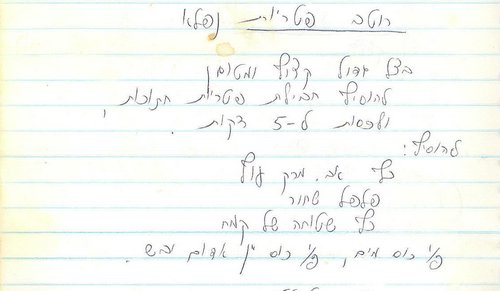 רוטב פטריות נפלא
בצל גדול קצוץ ומטוגן
להוסיף חבילת פטריות חתוכות,
ולכסות ל-5 דקות.
להוסיף:
כף אב. מרק עוף
פלפל שחור
כף שטוחה של קמח
כוס מים, כוס יין אדום יבש.